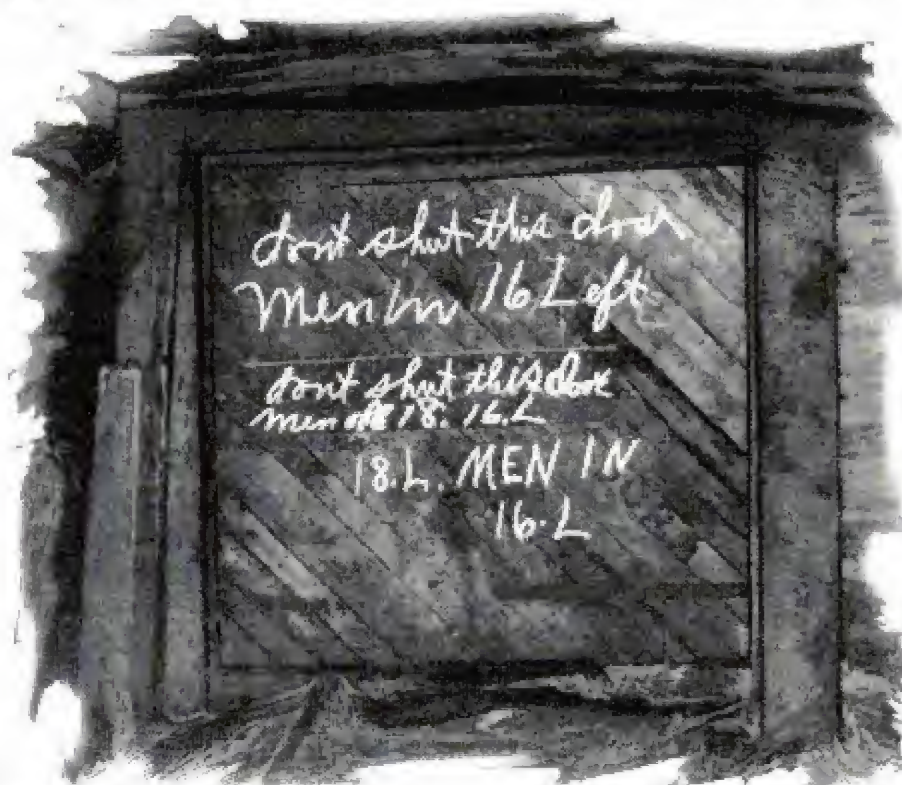 dont shut this door
Men In 16 Left
dont shut this dore
men 18. 16.L
18.L. MEN IN
16.L